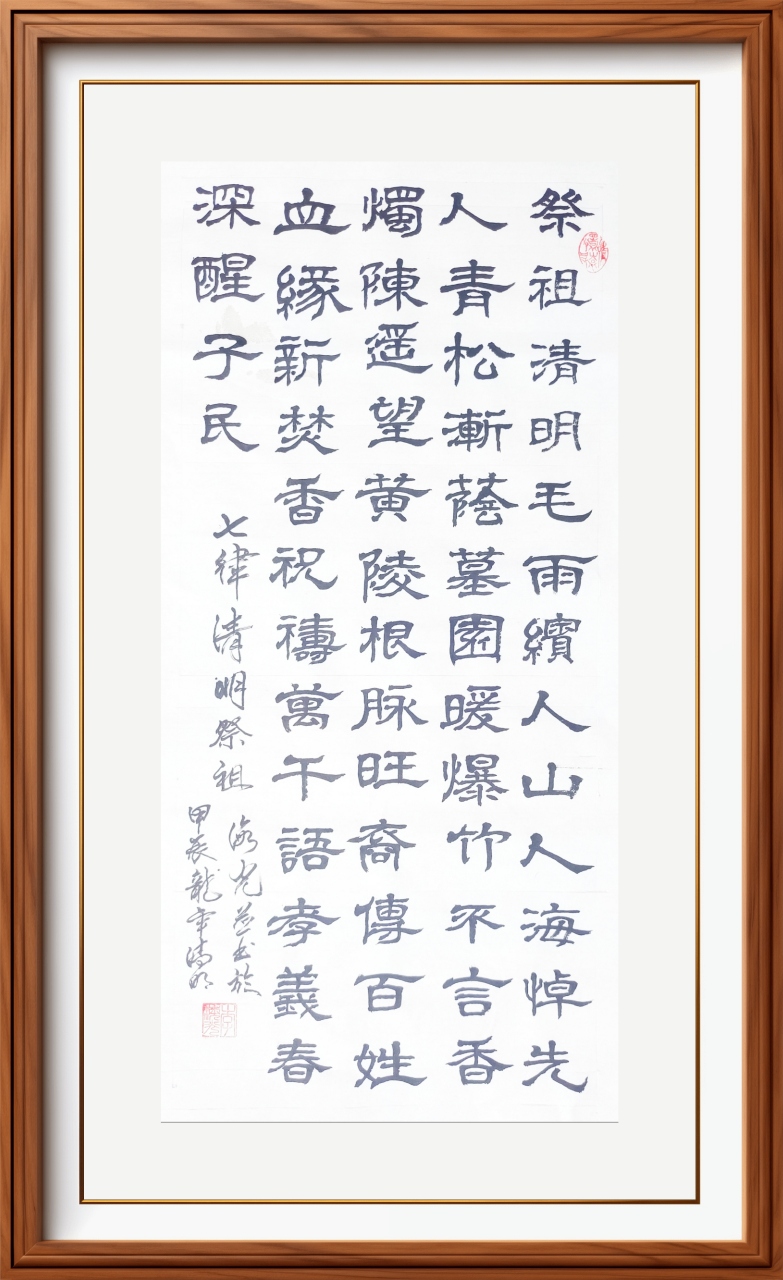 祭祖清明毛雨繽人山人海悼先
人青松漸蔭墓園暖爆竹不言香
燭陳遥望黄陵根脉旺裔傳百姓
血緣新焚香祝禱萬千語孝義春
深醒子民
七律清明祭祖
光並书於
甲辰龍年清明